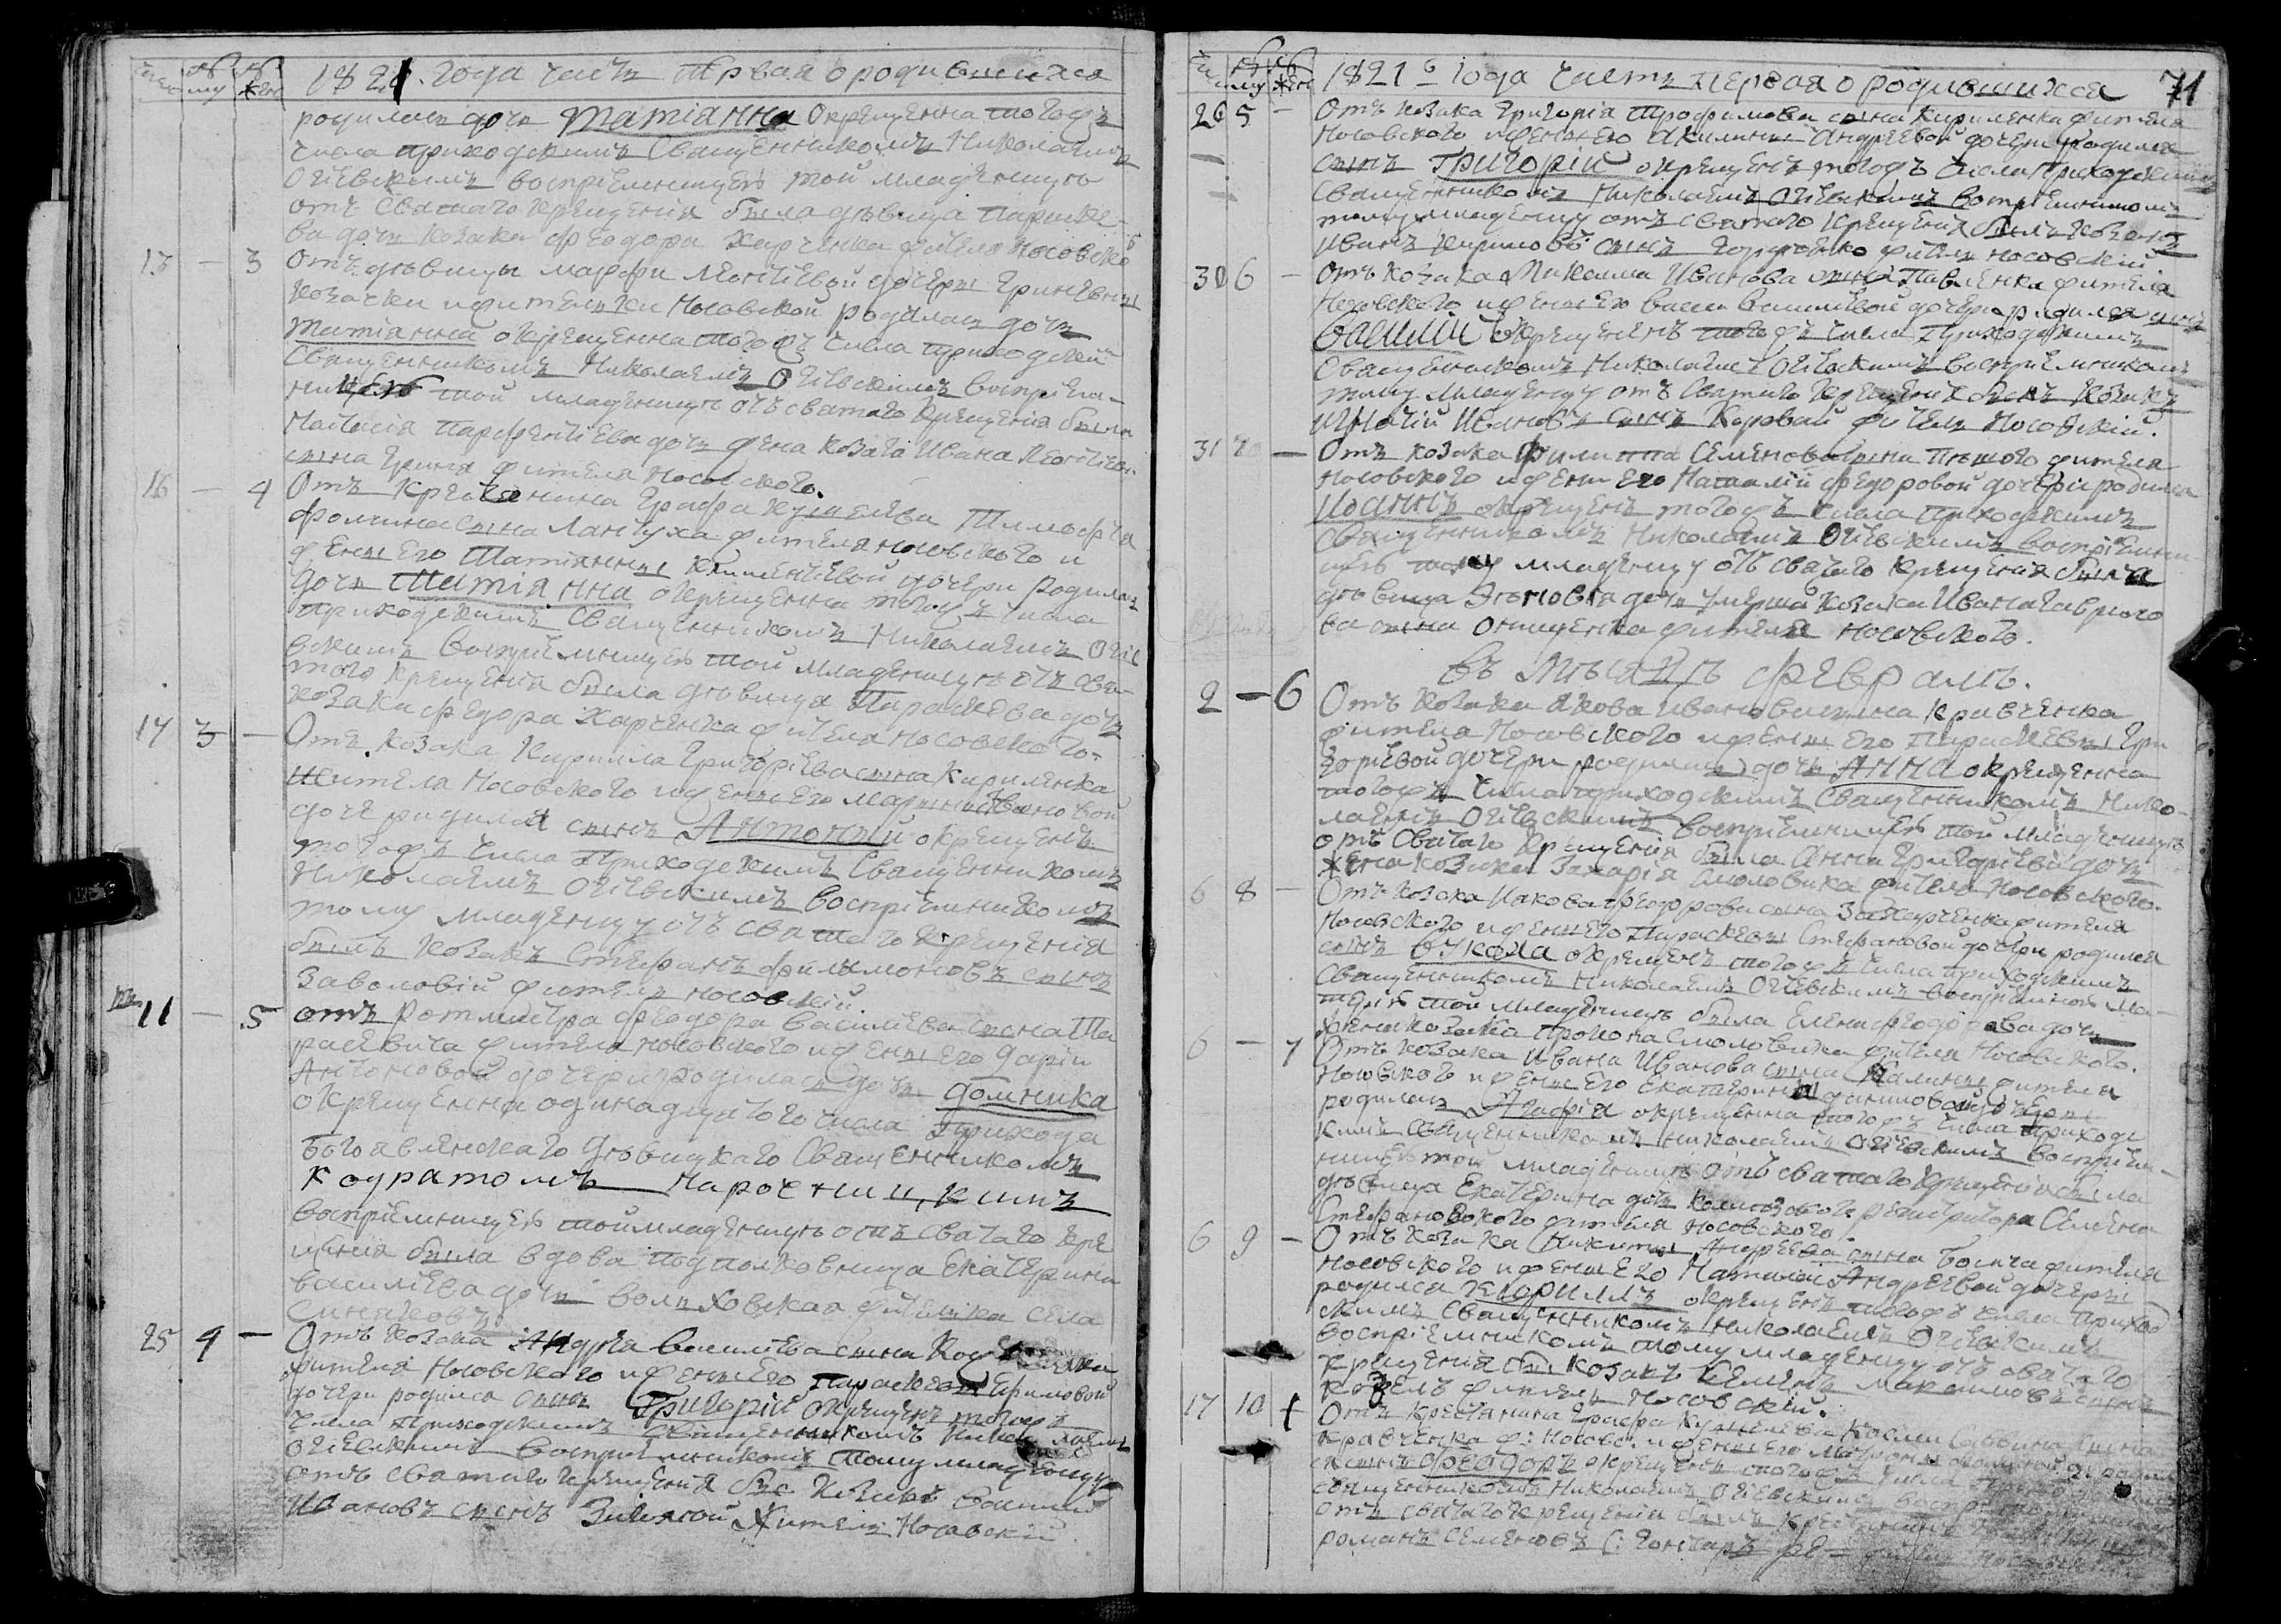 1821. года часть Первая о родившихся
родилась дочь Татіанна окрещенна тогожъ
числа приходскимъ Священникомъ Николаемъ
Огіевскимъ воспріемницею той младеницы
отъ Святаго крещенія была дѣвица Параске-
ва дочь козака Феодора Харченка жителя Носовско
13 — 3 Отъ дѣвицы Марфы Леонтіевой дочери Гриневны
козачки и жительки Носовской родилась дочь
Татіанна окрещенна тогожъ числа приходскимъ
Священникомъ Николаемъ Огіевскимъ воспріем-
ницею той младеницы отъ святаго крещенія была
Настасія Парфентіева дочь жена козака Ивана Леонтіева
сына Гриня жителя Носовского.
16 — 4 Отъ Крестянина Графа Кушелева Тимофея
Фомина сына Лантуха жителя носовского и
жены Его Татіанны Климентіевой дочери родилась
дочь Татіанна окрещенна тогожъ числа
приходскимъ Священникомъ Николаемъ Огіе
вскимъ воспріемницею той младеницы отъ свя-
того крещенія была дѣвица Параскева дочь
козака Федора Харченка жителя носовского.
17 3 — Отъ козака Кирилла Григоріева сына Кириленка
жителя Носовского и жены Его Марины Ивановой
дочери родился сынъ Антоній окрещенъ
тогожъ числа Приходскимъ Священникомъ
Николаемъ Огіевскимъ воспріемникомъ
тому младенцу отъ святаго крещенія
былъ козакъ Стефанъ Филимоновъ сынъ
Заволовій житель носовскій.
11 — 5 отъ Ротмистра Феодора Василіева сына Та
расевича жителя носовского и жены Его Даріи
Антоновой дочери родилась дочь Домника
окрещенна одинадцятого числа Прихода
Богоявленскаго дѣвицкаго Священникомъ
Кодратомъ
воспріемницею той младеницы отъ святаго кре
щенія была вдова подполковница Екатерина
василіева дочь волховская жителька села
Синяковъ
25 4 — Отъ козака Андрея василіева сына
жителя Носовского и жены Его Параскевы Ефимовой
дочери родился сынъ Григорій окрещенъ тогожъ
числа Приходскимъ Священникомъ Николаемъ
Огіевскимъ воспріемникомъ тому младенцу
отъ святаго крещенія былъ козакъ василій
Ивановъ сынъ житель Носовскій
1821 года часть первая о родившихся 71
26 5 — Отъ козака Григорія Трофимова сына Кириленка жителя
Носовского и жены Его Акилины Андреевой дочери родился
сынъ Григорій окрещенъ тогожъ числа Приходскимъ
Священникомъ Николаемъ Огіевскимъ воспріемникомъ
тому младенцу отъ святаго крещенія былъ козакъ
Иванъ Кириловъ сынъ житель носовскій
30 6 — Отъ козака Михаила Иванова сына Павленка жителя
Носовского и жены Его Василіевой дочери родился сынъ
Василій окрещенъ тогожъ числа Приходскимъ
Священникомъ Николаемъ Огіевскимъ воспріемникомъ
тому младенцу отъ Святаго крещенія былъ козакъ
Игнатій Ивановъ сынъ житель Носовскій.
31 — Отъ козака Филиппа Семенова сына Пѣшого жителя
Носовского и жены Его Наталіи Федоровой дочери родился
Иоаннъ окрещенъ тогожъ числа приходскимъ
Священникомъ Николаемъ Огіевскимъ воспріемни
цею тому младенцу отъ святаго крещенія была
дѣвица дочь умершаго козака Ивана Гаврило
ва сына Онищенка жителя носовского.
въ Мѣсяцѣ Февралѣ.
2 — 6 Отъ козака Якова Иванова сына Кравченка
жителя Носовского и жены Его Параскевы Гри
горіевой дочери родилась дочь Анна окрещенна
тогожъ числа приходскимъ Священникомъ Нико-
лаемъ Огіевскимъ воспріемницею той младеницы
отъ Святаго крещенія была Анна Григоріева дочь
жена козака Захарія Смоловика жителя Носовского.
6 8 — Отъ козака Иакова Феодорова сына Захарченка жителя
Носовского и жены Его Параскевы Стефановой дочери родился
сынъ Вукола окрещенъ тогожъ числа приходскимъ
Священникомъ Николаемъ Огіевскимъ воспріемною Ма-
терію той младеницы была Елена Феодорова дочь
жена козака Прокопа Смоловика жителя Носовского.
6 — 7 Отъ козака Ивана Иванова сына Калины жителя
Носовского и жены Его Екатерины Даниловой дочери
родилась Агафія окрещенна тогожъ числа приходс
кимъ священникомъ Николаемъ Огіевскимъ воспріем-
ницею той младеницы отъ святаго крещенія была
дѣвица Екатерина дочь регистратора Семена
Стефановского жителя носовского.
6 9 — Отъ козака Никиты Андреева сына жителя
Носовского и жены Его Наталіи Андреевой дочери
родился Кириллъ окрещенъ тогожъ числа приход
скимъ Священникомъ Николаемъ Огіевскимъ
воспріемникомъ тому младенцу отъ святаго
крещенія былъ козакъ Семенъ Максимовъ сынъ
Козелъ житель Носовскій.
17 10 Отъ Крестянина Графа Кушелева Космы Саввина сына
Кравченка ж: Носовс. и жены Его
сынъ Феодоръ окрещенъ тогожъ числа
священникомъ Николаемъ Огіевскимъ
отъ святаго крещенія былъ крестянинъ
романъ Семеновъ с: Гончаръ